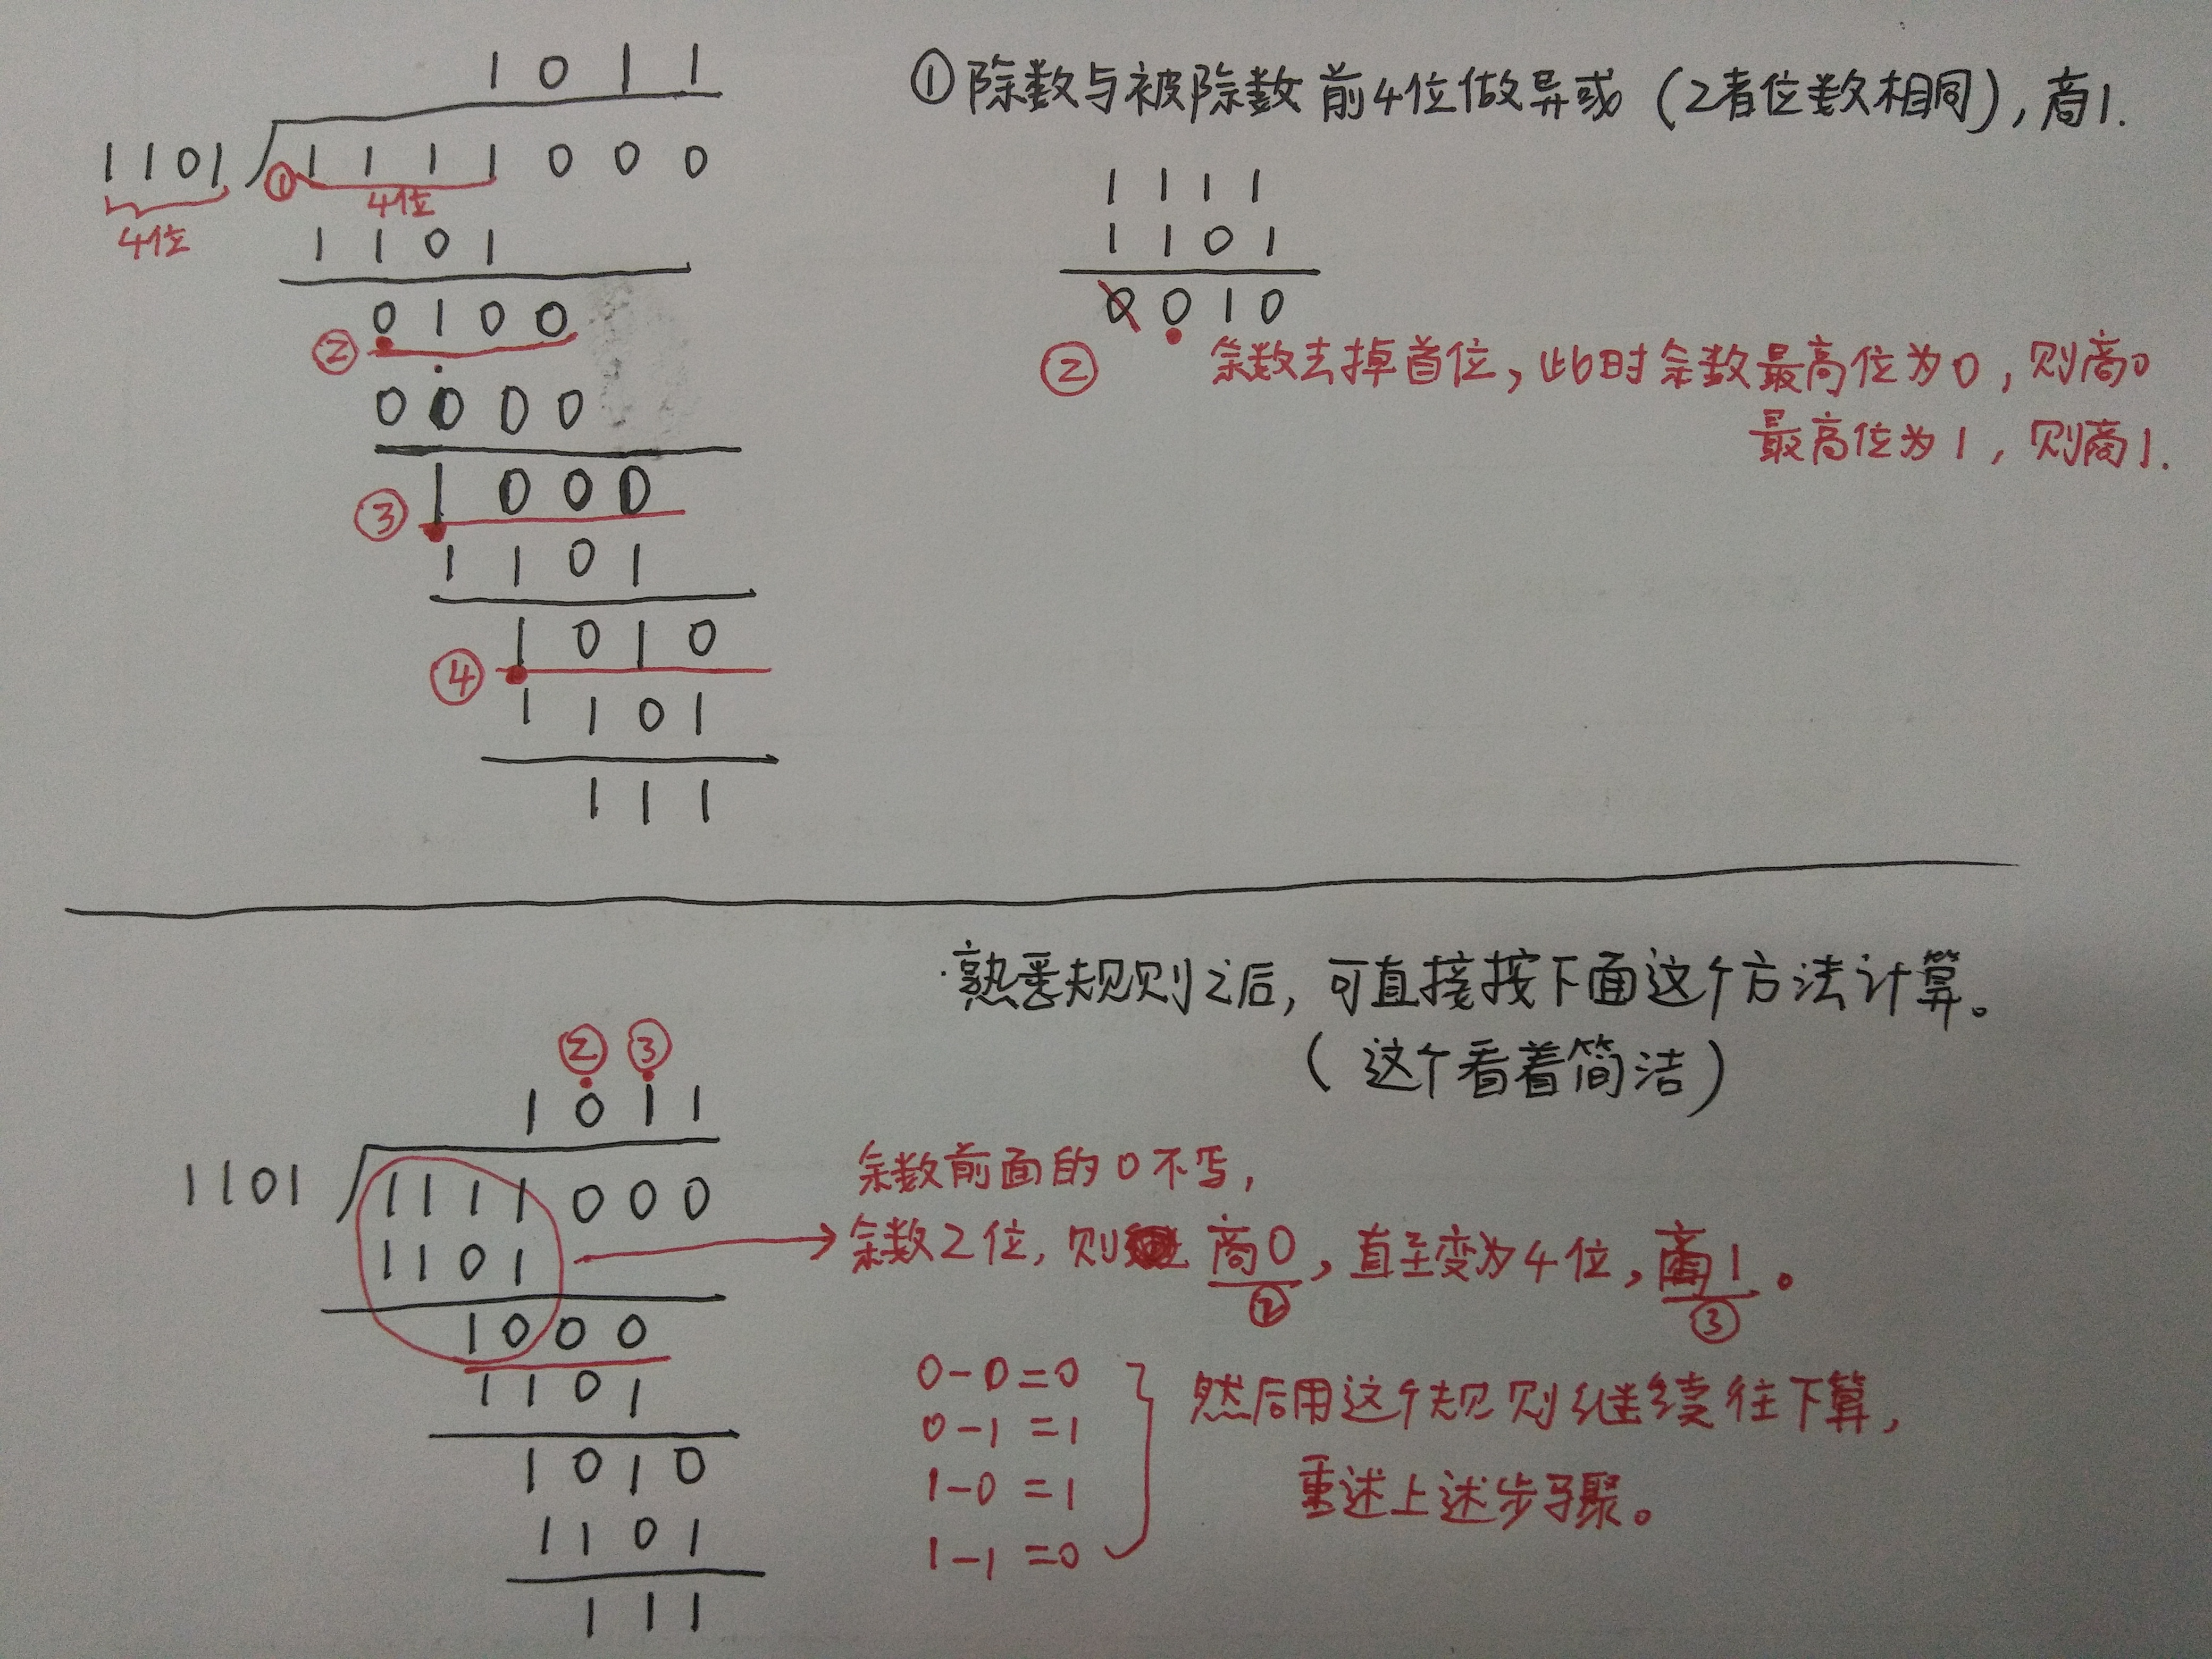 1 0 1 1
1101 1 1 1 1 0 0 0
① 4位
4位
1 1 0 1
0 1 0 0
②
0 0 0 0
1 0 0 0
③
1 1 0 1
1 0 1 0
④
1 1 0 1
1 1 1
①除数与被除数前4位做异或(2者位数相同),商1.
1 1 1 1
1 1 0 1
0 0 1 0
② 余数去掉首位,此时余数最高位为0,则商0
最高位为1,则商1.
熟悉规则之后,可直接按下面这个方法计算。
(这个看着简洁)
② ③
1 0 1 1
1101 1 1 1 1 0 0 0
1 1 0 1
1 0 0 0
1 1 0 1
1 0 1 0
1 1 0 1
1 1 1
余数前面的0不写,
余数2位,则商0,直至变为4位,商1。
② ③
0-0=0
0-1=1
1-0=1
1-1=0
然后用这个规则继续往下算,
重述上述步骤。